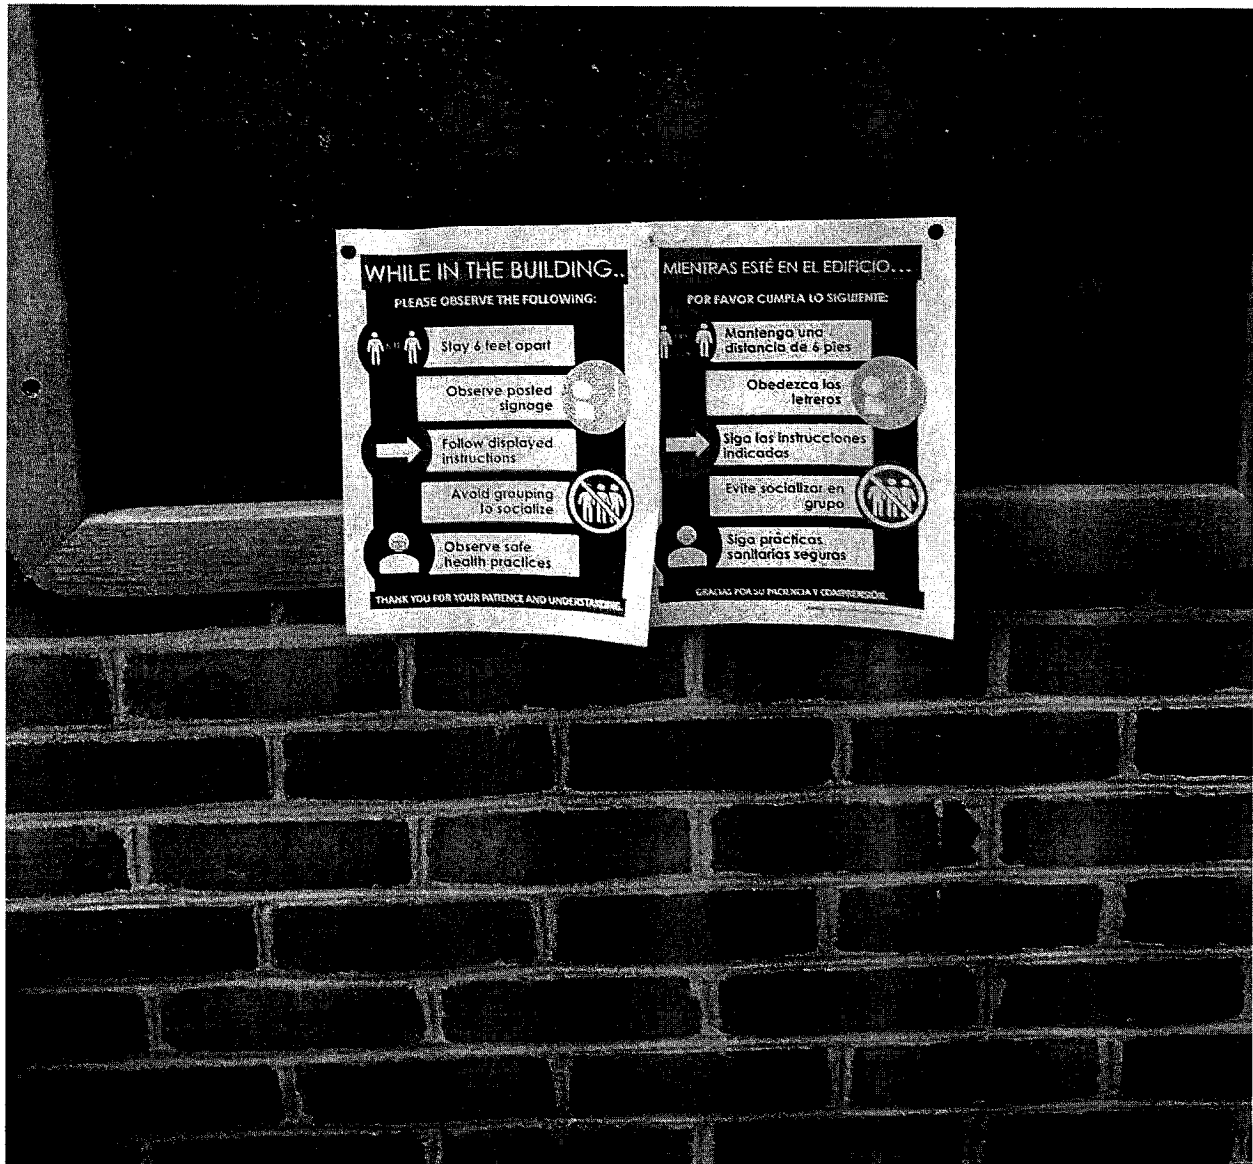 WHILE IN THE BUILDING..
PLEASE OBSERVE THE FOLLOWING:
Stay 6 feet apart
Observe posted
signage
Follow displayed
instructions
Avoid grouping
to socialize
Observe safe
health practices
THANK YOU FOR YOUR PATIENCE AND UNDERSTANDING.
MIENTRAS ESTÉ EN EL EDIFICIO...
POR FAVOR CUMPLA LO SIGUIENTE:
Mantenga una
distancia de 6 pies
Obedezca los
letreros
Siga las instrucciones
indicadas
Evite socializar en
grupo
Siga prácticas
sanitarias seguras
GRACIAS POR SU PACIENCIA Y COMPRENSIÓN.